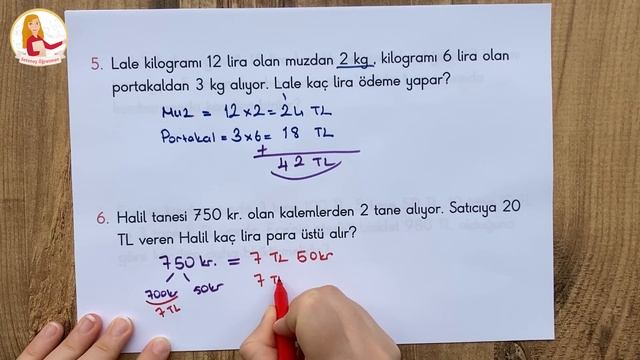 5. Lale kilogramı 12 lira olan muzdan 2 kg, kilogramı 6 lira olan
portakaldan 3 kg alıyor. Lale kaç lira ödeme yapar?
Muz = 12 x 2 = 24 TL
Portakal = 3 x 6 = 18 TL
+
42 TL
6. Halil tanesi 750 kr. olan kalemlerden 2 tane alıyor. Satıcıya 20
TL veren Halil kaç lira para üstü alır?
750 kr. = 7 TL 50 kr
700kr 50kr 7 TL
7 TL